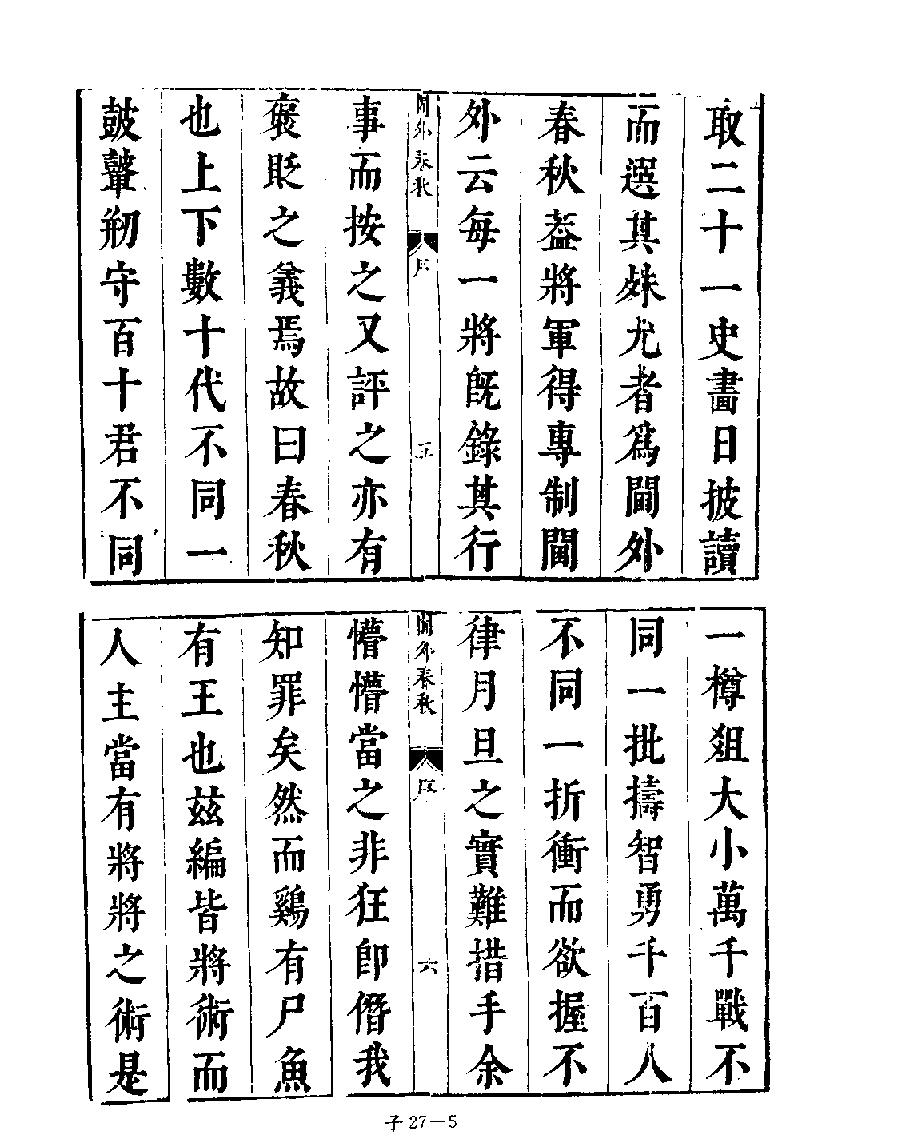 取二十一史晝日披讀
而選其姝尤者爲閫外
春秋葢將軍得專制閫
外云每一將旣錄其行
閫外春秋
序
五
事而按之又評之亦有
褒貶之義焉故曰春秋
也上下數十代不同一
鼓鼙剏守百十君不同
一樽俎大小萬千戰不
同一批擣智勇千百人
不同一折衝而欲握不
律月旦之實難措手余
閫外春秋
序
六
懵懵當之非狂卽僭我
知罪矣然而鷄有尸魚
有王也玆編皆將術而
人主當有將將之術是
子27—5